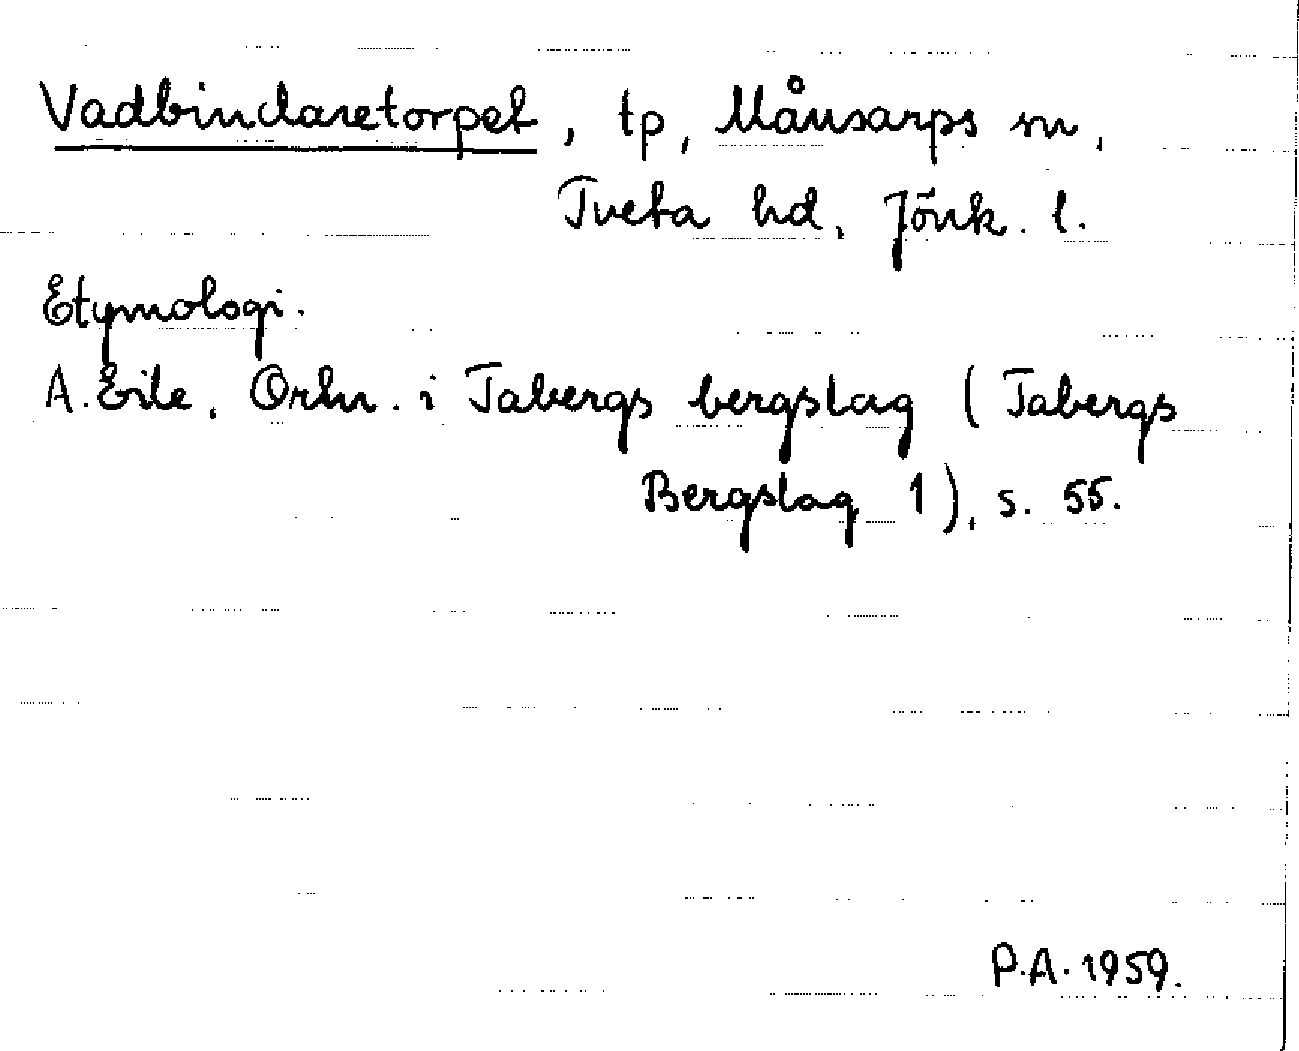 Vadbindaretorpet, tp, Månsarps sn,
Tveta hd, Jönk. l.
Etymologi.
A. Ejle, Ortn. i Tabergs bergslag (Tabergs
Bergslag 1), s. 55.
P.A. 1959.